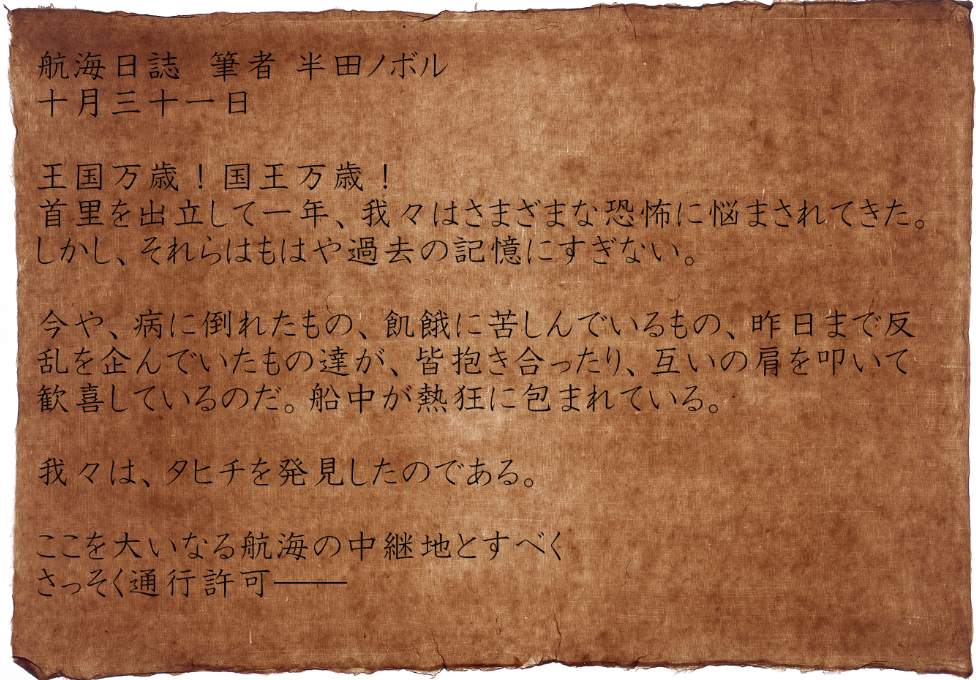 航海日誌　筆者 半田ノボル
十月三十一日
王国万歳！国王万歳！
首里を出立して一年、我々はさまざまな恐怖に悩まされてきた。
しかし、それらはもはや過去の記憶にすぎない。
今や、病に倒れたもの、飢餓に苦しんでいるもの、昨日まで反
乱を企んでいたもの達が、皆抱き合ったり、互いの肩を叩いて
歓喜しているのだ。船中が熱狂に包まれている。
我々は、タヒチを発見したのである。
ここを大いなる航海の中継地とすべく
さっそく通行許可――